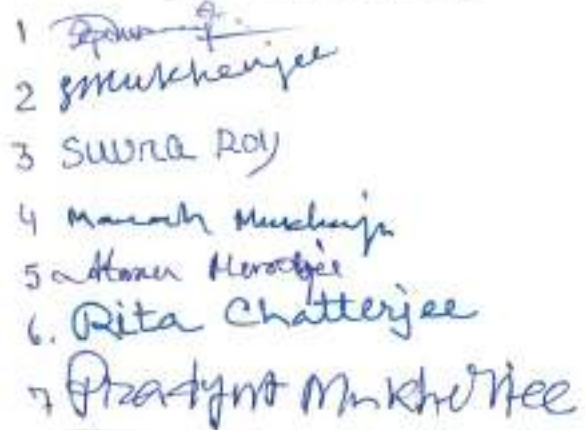 1
2 SMukherjee
3 SUVRA ROY
4 Manash Mukherjee
5
6. Rita Chatterjee
7 Pradyut Mukherjee